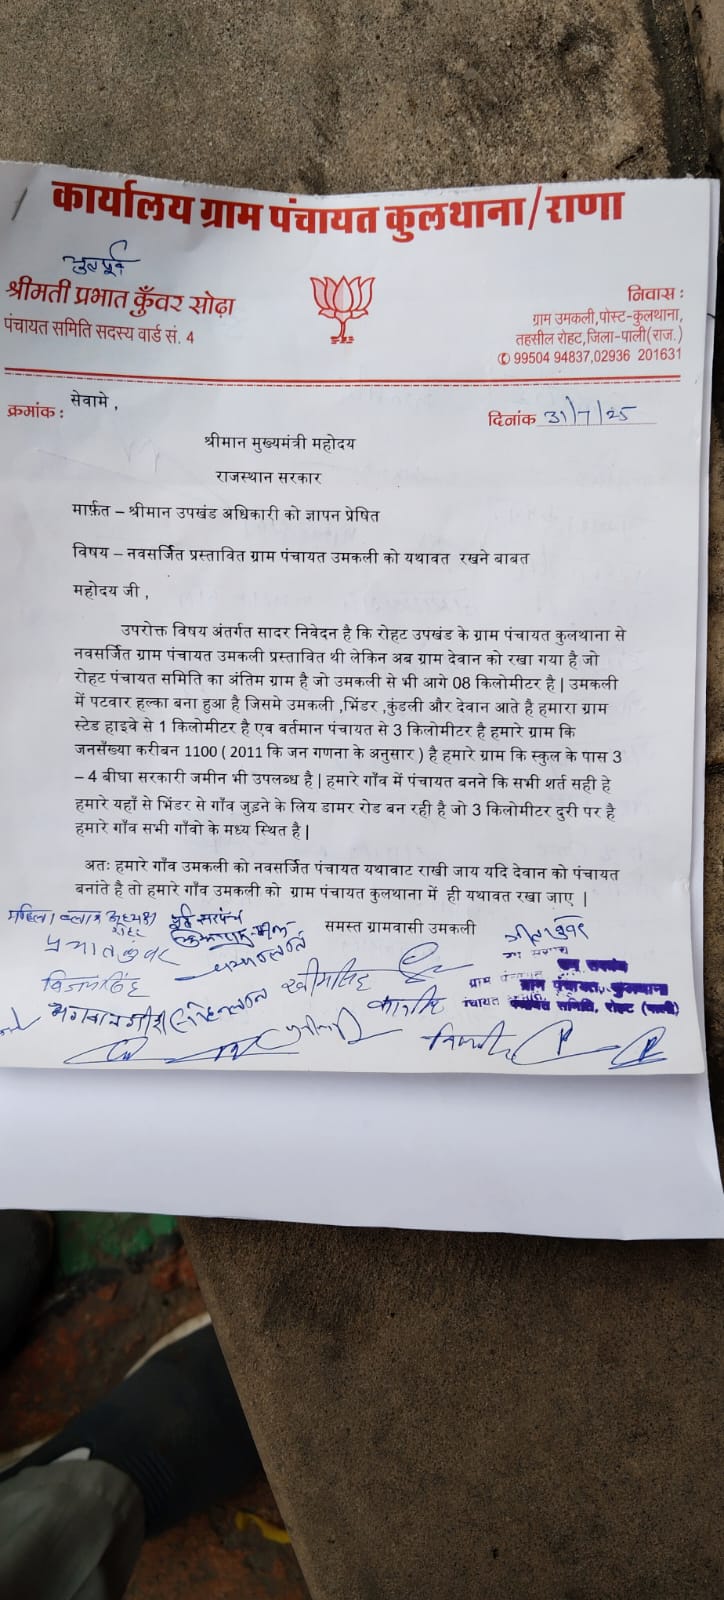 कार्यालय ग्राम पंचायत कुलथाना/राणा
श्रीमती प्रभात कुँवर सोढ़ा
पंचायत समिति सदस्य वार्ड सं. 4
निवास :
ग्राम उमकली,पोस्ट-कुलथाना,
तहसील रोहट,जिला-पाली(राज.)
✆ 99504 94837,02936 201631
क्रमांक :
सेवामे ,
दिनांक 31/7/25
श्रीमान मुख्यमंत्री महोदय
राजस्थान सरकार
मार्फ़त – श्रीमान उपखंड अधिकारी को ज्ञापन प्रेषित
विषय – नवसर्जित प्रस्तावित ग्राम पंचायत उमकली को यथावत रखने बाबत
महोदय जी ,
उपरोक्त विषय अंतर्गत सादर निवेदन है कि रोहट उपखंड के ग्राम पंचायत कुलथाना से
नवसर्जित ग्राम पंचायत उमकली प्रस्तावित थी लेकिन अब ग्राम देवान को रखा गया है जो
रोहट पंचायत समिति का अंतिम ग्राम है जो उमकली से भी आगे 08 किलोमीटर है | उमकली
में पटवार हल्का बना हुआ है जिसमे उमकली ,भिंडर ,कुंडली और देवान आते है हमारा ग्राम
स्टेड हाइवे से 1 किलोमीटर है एव वर्तमान पंचायत से 3 किलोमीटर है हमारे ग्राम कि
जनसँख्या करीबन 1100 ( 2011 कि जन गणना के अनुसार ) है हमारे ग्राम कि स्कुल के पास 3
– 4 बीघा सरकारी जमीन भी उपलब्ध है | हमारे गाँव में पंचायत बनने कि सभी शर्त सही हे
हमारे यहाँ से भिंडर से गाँव जुड़ने के लिय डामर रोड बन रही है जो 3 किलोमीटर दुरी पर है
हमारे गाँव सभी गाँवो के मध्य स्थित है |
अतः हमारे गाँव उमकली को नवसर्जित पंचायत यथावाट राखी जाय यदि देवान को पंचायत
बनांते है तो हमारे गाँव उमकली को ग्राम पंचायत कुलथाना में ही यथावत रखा जाए |
समस्त ग्रामवासी उमकली
पूर्व सरपंच
प्रभात कुंवर
ग्राम पंचायत, कुलथाना
पंचायत समिति, रोहट (पाली)